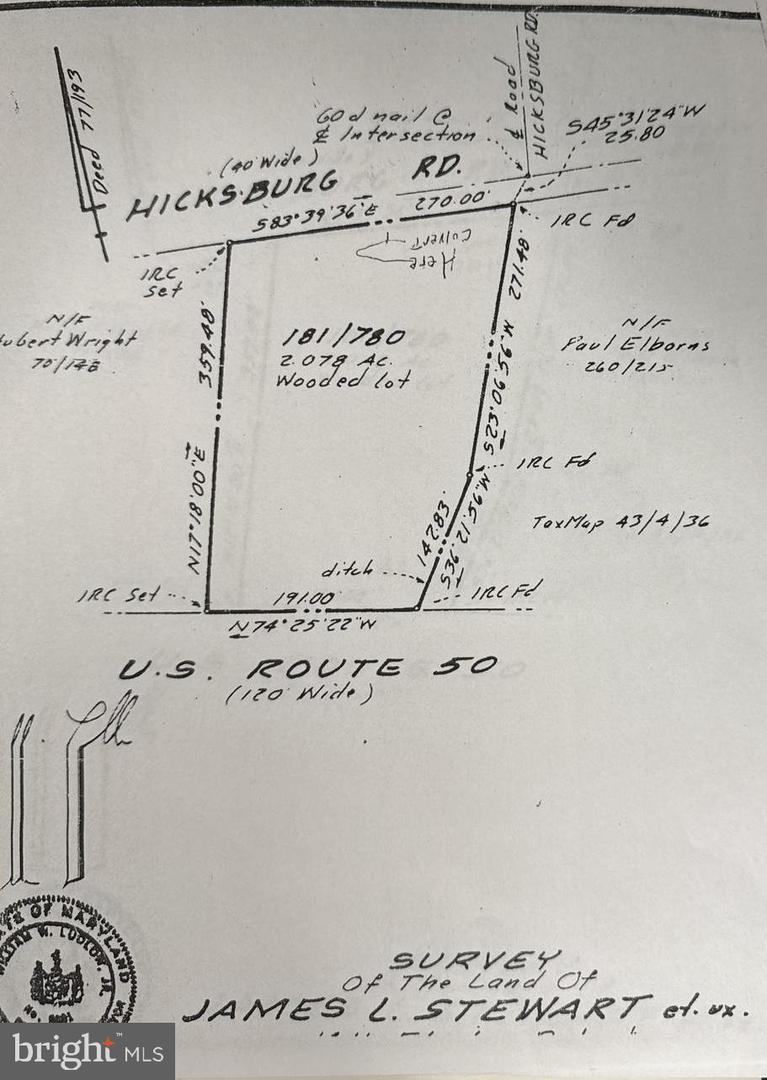 Deed 77/193
60d nail @
℄ Intersection
℄ Road
HICKSBURG RD.
S45°31'24"W
25.80
(40' Wide)
HICKSBURG RD.
S83°39'36"E 270.00'
IRC Fd
IRC
Set
Culvert
Here
359.48'
N17°18'00"E
271.48'
S23°06'56"W
N/F
Hubert Wright
70/148
181/780
2.078 AC.
Wooded lot
N/F
Paul Elborns
260/215
IRC Fd
142.83'
S36°21'56"W
Tax Map 43/4/36
ditch
IRC Set
191.00'
IRC Fd
N74°25'22"W
U.S. ROUTE 50
(120' Wide)
STATE OF MARYLAND
WILLIAM W. LUDLOW, JR.
SURVEY
Of The Land Of
JAMES L. STEWART et. ux.
bright™ MLS